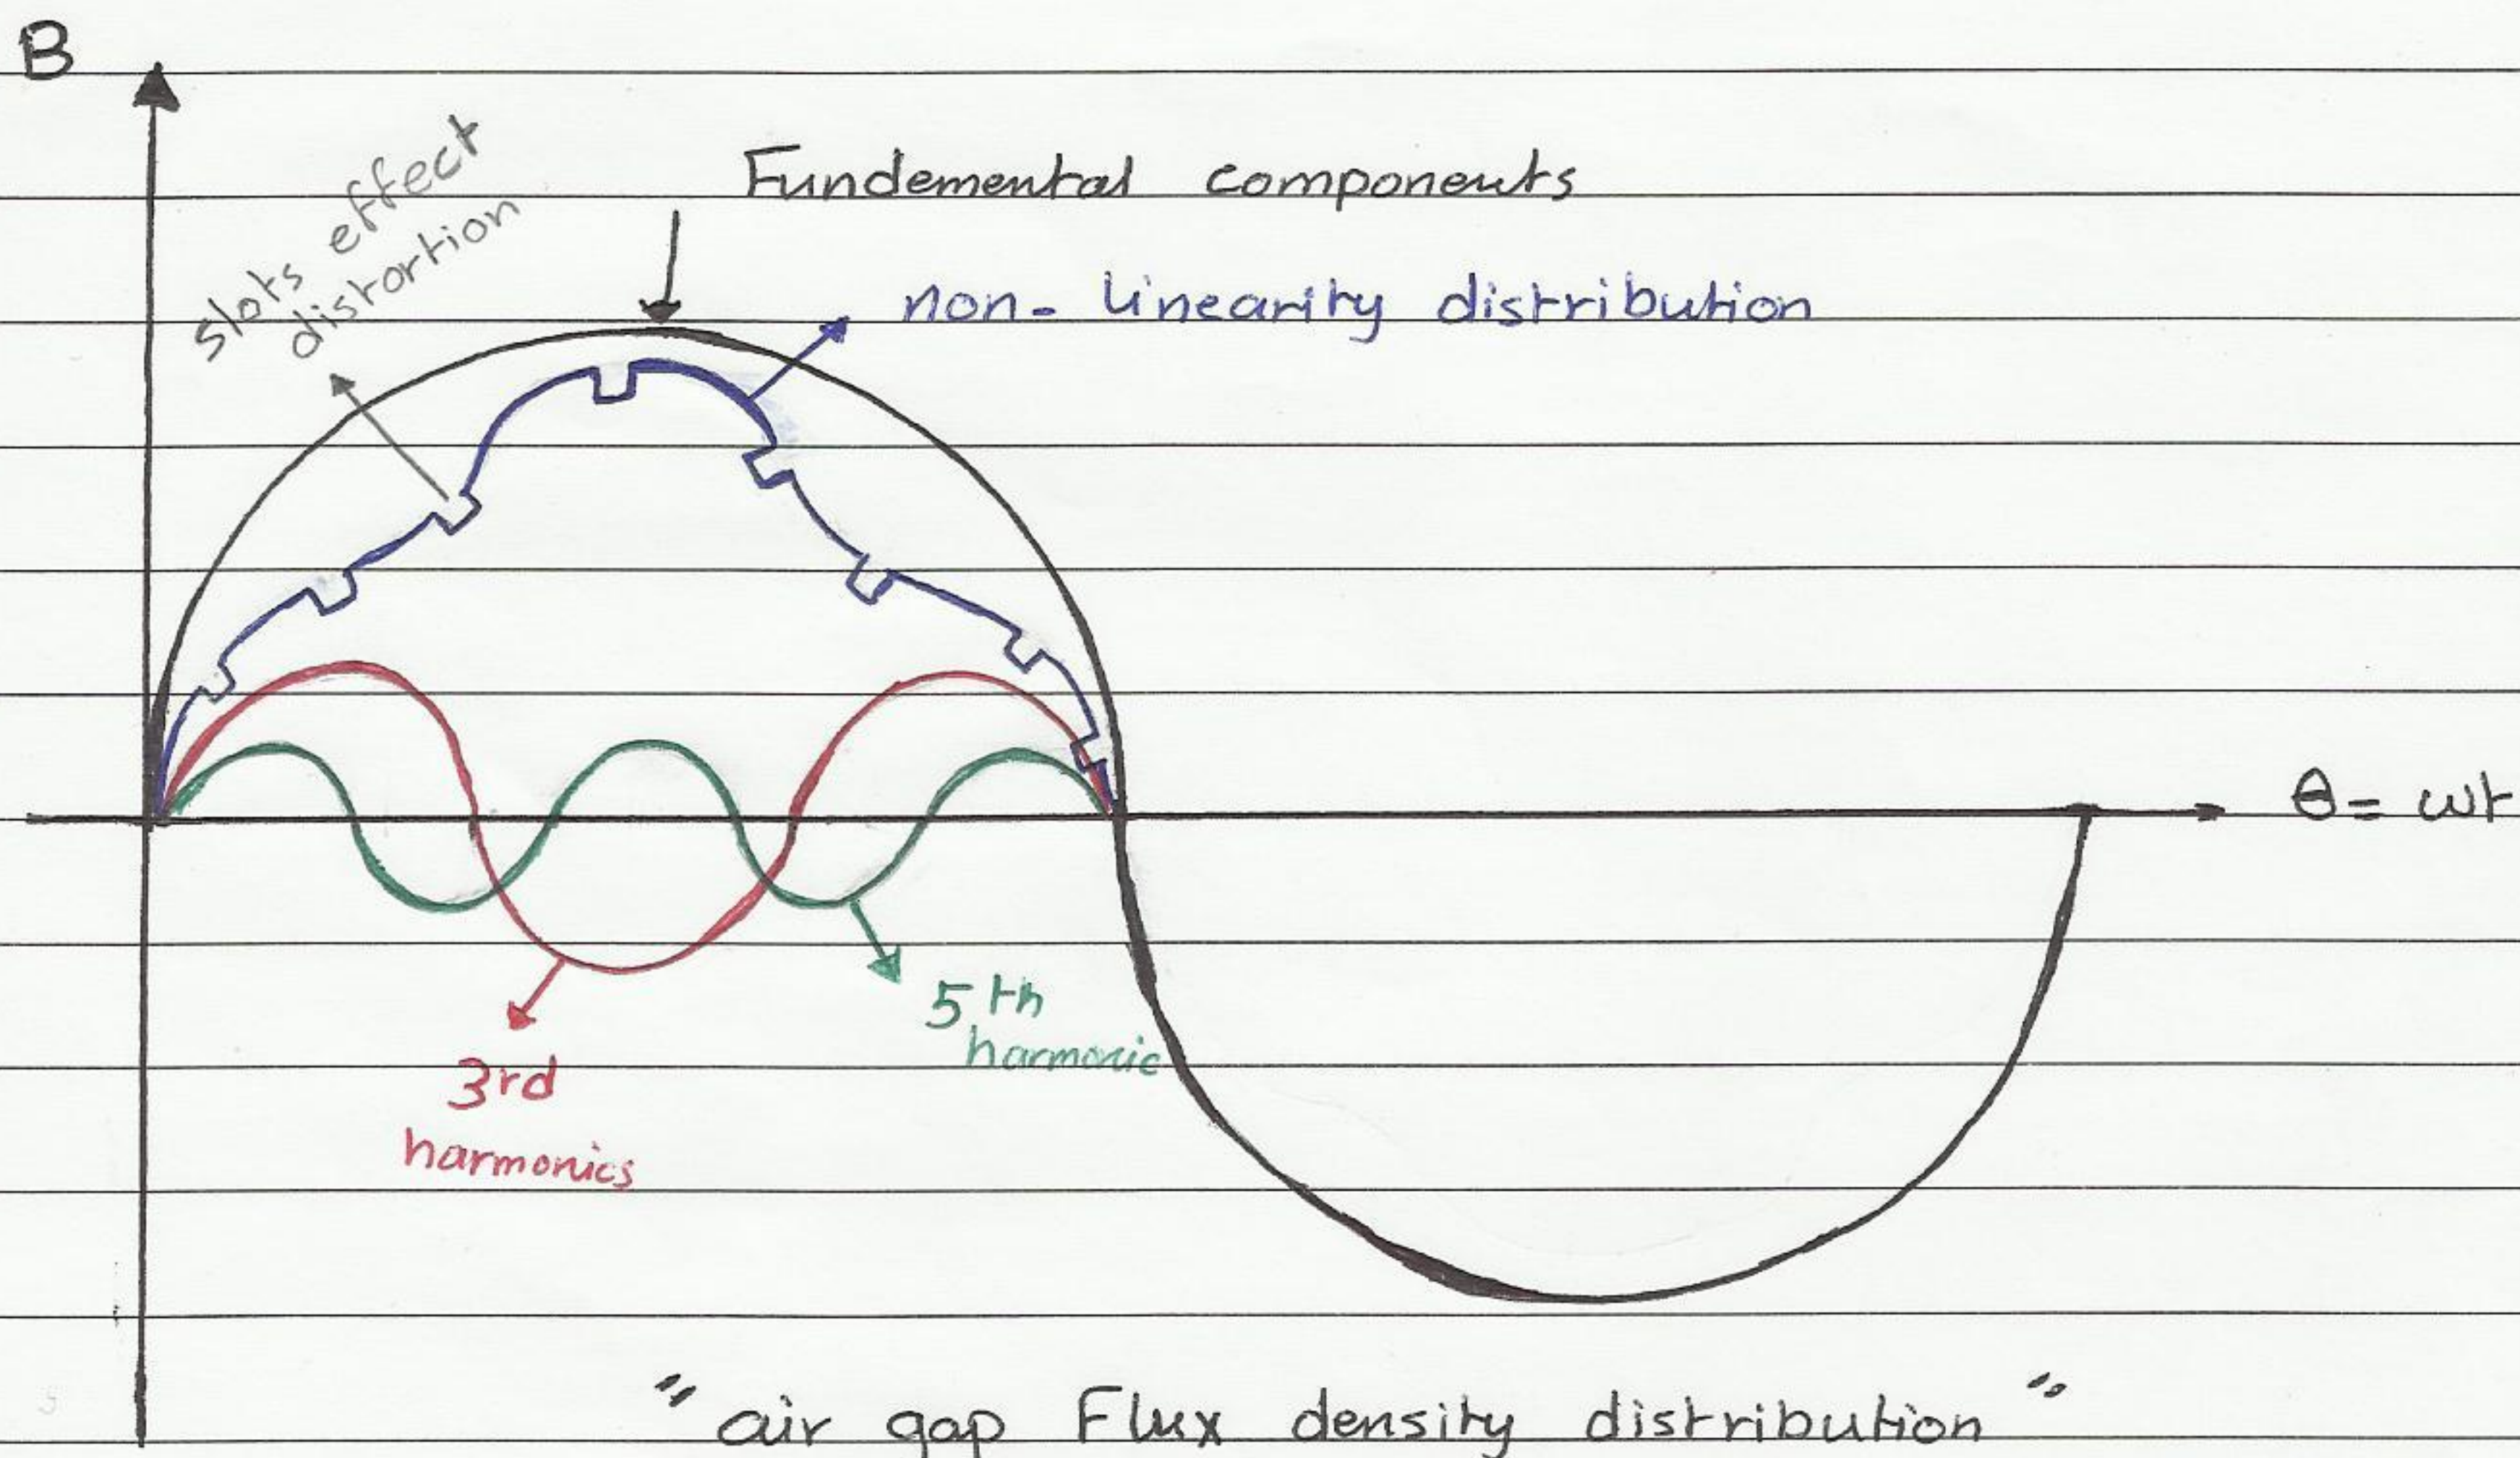 B
slots effect
distortion
Fundemental components
non-linearity distribution
θ = wt
5th
harmonic
3rd
harmonics
"air gap Flux density distribution"